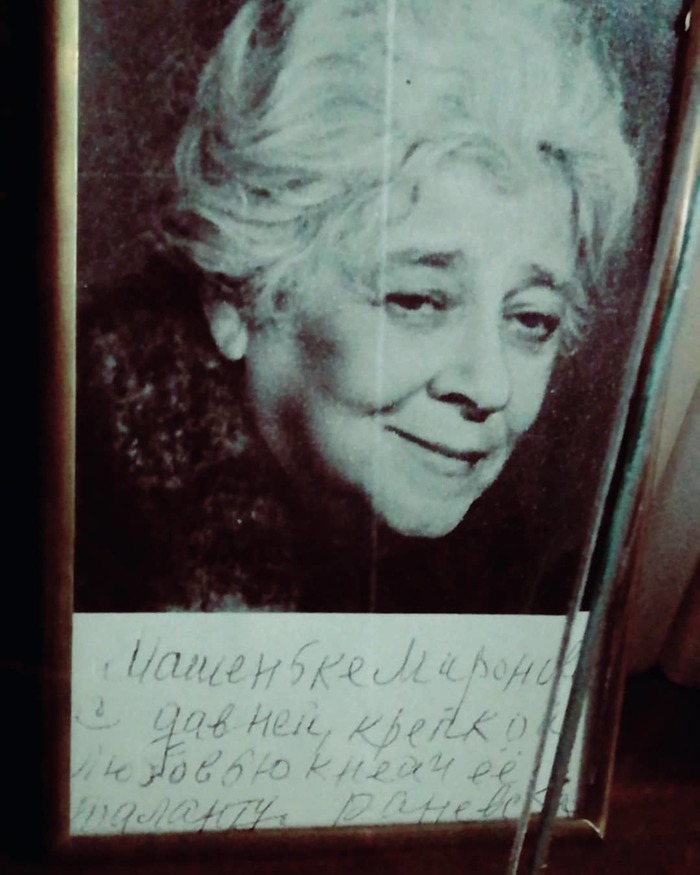 Машеньке Миронов
с давней, крепкой
любовью к ней и её
таланту. Раневска